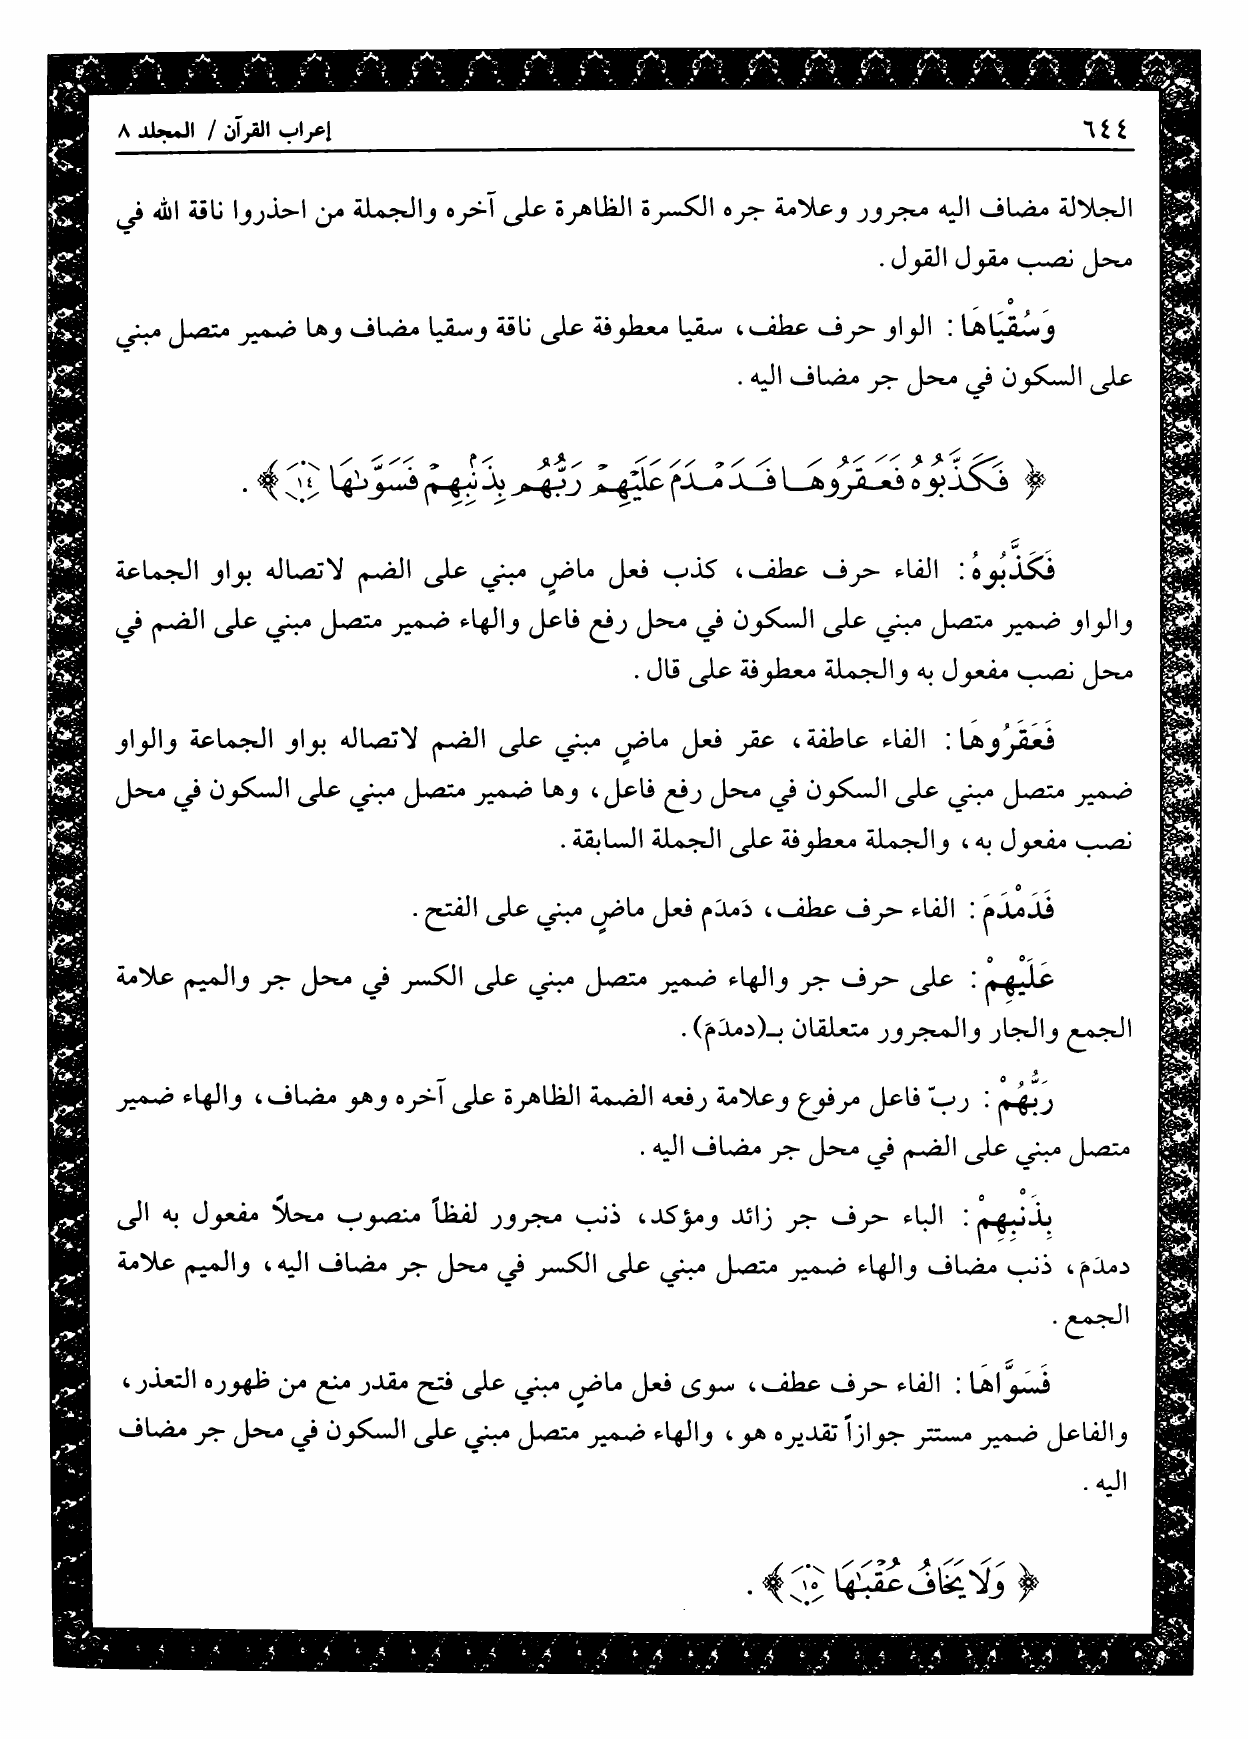 ٦٤٤ إعراب القرآن / المجلد ٨
الجلالة مضاف اليه مجرور وعلامة جره الكسرة الظاهرة على آخره والجملة من احذروا ناقة الله في
محل نصب مقول القول .
وَسُقْيَاهَا : الواو حرف عطف، سقيا معطوفة على ناقة وسقيا مضاف وها ضمير متصل مبني
على السكون في محل جر مضاف اليه .
﴿ فَكَذَّبُوهُ فَعَقَرُوهَا فَدَمْدَمَ عَلَيْهِمْ رَبُّهُم بِذَنۢبِهِمْ فَسَوَّىٰهَا ١٤ ﴾ .
فَكَذَّبُوهُ : الفاء حرف عطف، كذب فعل ماضٍ مبني على الضم لاتصاله بواو الجماعة
والواو ضمير متصل مبني على السكون في محل رفع فاعل والهاء ضمير متصل مبني على الضم في
محل نصب مفعول به والجملة معطوفة على قال .
فَعَقَرُوهَا : الفاء عاطفة، عقر فعل ماضٍ مبني على الضم لاتصاله بواو الجماعة والواو
ضمير متصل مبني على السكون في محل رفع فاعل، وها ضمير متصل مبني على السكون في محل
نصب مفعول به، والجملة معطوفة على الجملة السابقة .
فَدَمْدَمَ : الفاء حرف عطف، دَمدَم فعل ماضٍ مبني على الفتح .
عَلَيْهِمْ : على حرف جر والهاء ضمير متصل مبني على الكسر في محل جر والميم علامة
الجمع والجار والمجرور متعلقان بـ(دمدَمَ) .
رَبُّهُمْ : ربّ فاعل مرفوع وعلامة رفعه الضمة الظاهرة على آخره وهو مضاف، والهاء ضمير
متصل مبني على الضم في محل جر مضاف اليه .
بِذَنْبِهِمْ : الباء حرف جر زائد ومؤكد، ذنب مجرور لفظاً منصوب محلاً مفعول به الى
دمدَمَ، ذنب مضاف والهاء ضمير متصل مبني على الكسر في محل جر مضاف اليه، والميم علامة
الجمع .
فَسَوَّاهَا : الفاء حرف عطف، سوى فعل ماضٍ مبني على فتح مقدر منع من ظهوره التعذر،
والفاعل ضمير مستتر جوازاً تقديره هو، والهاء ضمير متصل مبني على السكون في محل جر مضاف
اليه .
﴿ وَلَا يَخَافُ عُقْبَٰهَا ١٥ ﴾ .